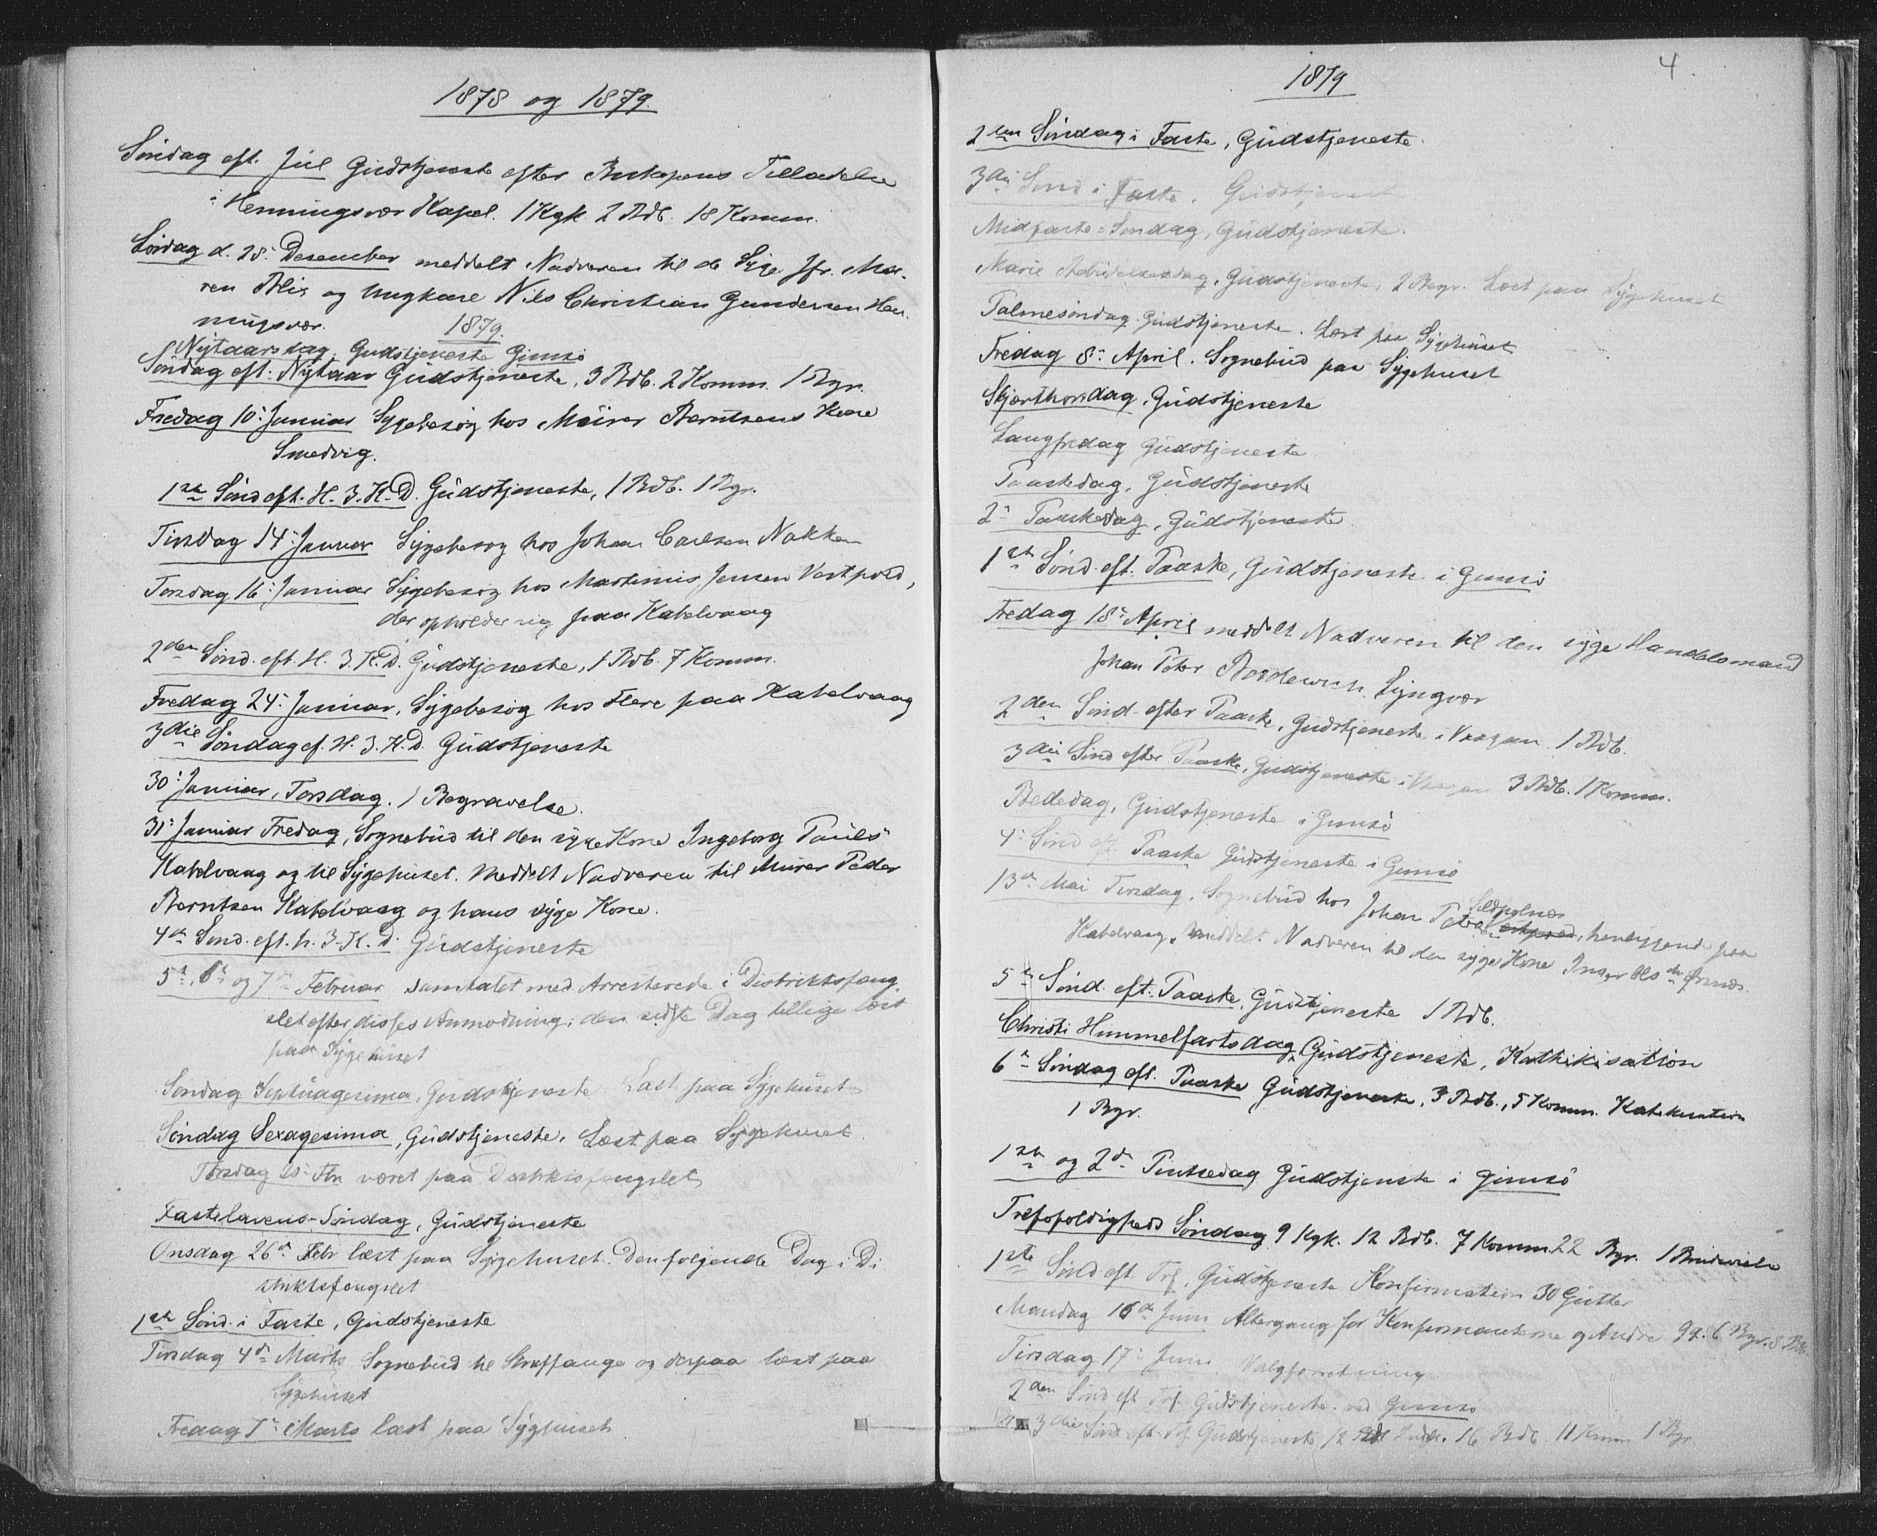 1878 og 1879.
Søndag eft. Jul Gudstjeneste efter Biskopens Tilladelse
i Henningsvær Kapel. 1 Kgk 2 Bdb. 18 Komm.
Lørdag d. 28: Desember meddelt Nadveren til de Syge Jfr. Ma-
ren og Ungkarl Nils Christian Gundersen Hen-
ningsvær.
1879
Nytaarsdag, Gudstjeneste Gimsø
Søndag eft. Nytaar Gudstjeneste, 3 Bdb. 2 Komm. 1 Bgr.
Fredag 10: Januar Sygebesøg hos Murer Berntsens Kone
Smedvig.
1ste Sønd eft. H. 3. K. D. Gudstjeneste, 1 Bdb. 1 Bgr.
Tirsdag 14: Januar Sygebesøg hos Johan Carlsen Nakken
Torsdag 16: Januar Sygebesøg hos Martinus Jensen Vestpold,
der opholder sig paa Kabelvaag
2den Sønd. eft. H. 3. K. D. Gudstjeneste, 1 Bdb. 7 Komm.
Fredag 24: Januar, Sygebesøg hos Flere paa Kabelvaag
3die Søndag ef. H. 3. K. D. Gudstjeneste
30: Januar, Torsdag. 1 Begravelse.
31: Januar Fredag, Sognebud til den syge Kone Ingeborg Pauls
Kabelvaag og til Sygehuset. Meddelt Nadveren til Murer Peder
Berntsen Kabelvaag og hans syge Kone.
4de Sønd. eft. h. 3. K. D. Gudstjeneste
5te, 6te og 7de Februar samtalet med Arresterede i Distriktsfæng-
slet efter disses Anmodning; den sidste Dag tillige læst
paa Sygehuset
Søndag Septuagesima, Gudstjeneste Læst paa Sygehuset
Søndag Sexagesima, Gudstjeneste. Læst paa Sygehuset
Torsdag været paa Distriktsfængslet
Fastelavens-Søndag, Gudstjeneste
Onsdag 26de Febr læst paa Sygehuset. Den følgende Dag i Di-
striktsfængslet
1ste Sønd. i Faste, Gudstjeneste
Tirsdag 4de Marts Sognebud til Straffange og derpaa læst paa
Sygehuset
Fredag 7de Marts læst paa Sygehuset
4.
1879
2den Søndag i Faste, Gudstjeneste.
3die Sønd i Faste, Gudstjeneste
Midfaste-Søndag, Gudstjeneste.
Marie Bebudelsesdag, Gudstjeneste, 2 Begr. Læst paa Sygehuset
Palmesøndag. Gudstjeneste. Læst paa Sygehuset
Fredag 8: April. Sognebud paa Sygehuset
Skjærthorsdag, Gudstjeneste
Langfredag Gudstjeneste
Paaskedag, Gudstjeneste
2: Paaskedag, Gudstjeneste.
1ste Sønd. eft. Paaske, Gudstjeneste i Gimsø
Fredag 18: April meddelt Nadveren til den syge Handelsmand
Johan Peter Lyngvær
2den Sønd. efter Paaske, Gudstjeneste i Vaagan. 1 Bdb.
3die Sønd efter Paaske, Gudstjeneste i Vaagan 3 Bdb. 1 Komm.
Bededag, Gudstjeneste i Gimsø
4: Sønd eft. Paaske Gudstjeneste i Gimsø
13de Mai Tirsdag, Sognebud hos Johan henliggende paa
Kabelvaag, meddelt Nadveren til den syge Kone Inger Olsdr Ørsnes.
5te Sønd. eft. Paaske, Gudstjeneste 1 Bdb.
Christi Himmelfartsdag, Gudstjeneste, Kathikisation
6te Søndag eft. Paaske Gudstjeneste, 3 Bdb., 5 Komm. Katekisation
1 Bgr.
1ste og 2den Pintsedag Gudstjeneste i Gimsø
Trefoldigheds Søndag 9 Kgk. 12 Bdb. 7 Komm. 22 Bgr. 1 Brudevielse
1ste Sønd eft Trf, Gudstjeneste Konfirmation 30 Gutter
Mandag 16de Juni Altergang for Konfirmanterne og Andre 97. 6 Bgr. 8 Bdb.
Tirsdag 17: Juni Valgforretning
2den Sønd. eft Trf. Gudstjeneste ved Gimsø
3die Sønd eft. Trf Gudstjeneste 12 16 Bdb 11 Komm 1 Bgr